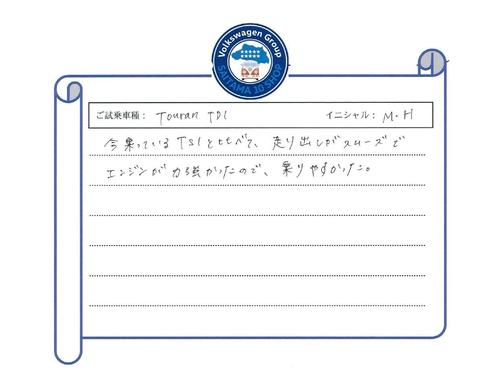 Volkswagen Group
SAITAMA 10 SHOP
ご試乗車種： Touran TDI イニシャル： M・H
今乗っているTSIと比べて、走り出しがスムーズで
エンジンが力強かったので、乗りやすかった。